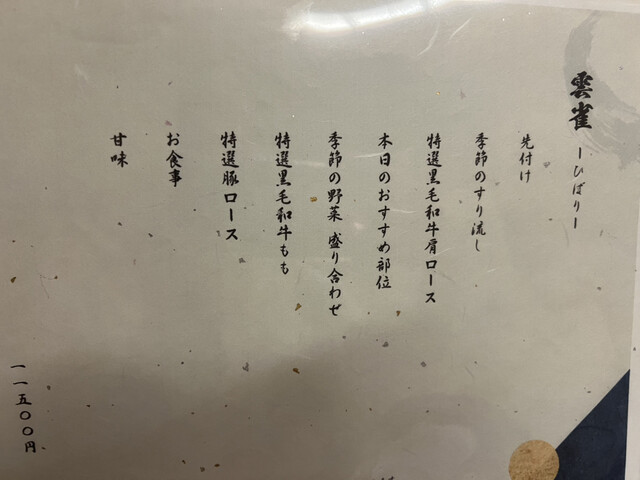 雲雀 ーひばりー
先付け
季節のすり流し
特選黒毛和牛肩ロース
本日のおすすめ部位
季節の野菜 盛り合わせ
特選黒毛和牛もも
特選豚ロース
お食事
甘味
一一五〇〇円